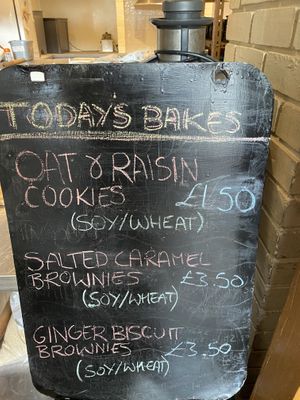 TODAY'S BAKES
OAT & RAISIN
COOKIES £1.50
(SOY/WHEAT)
SALTED CARAMEL
BROWNIES £3.50
(SOY/WHEAT)
GINGER BISCUIT
BROWNIES £3.50
(SOY/WHEAT)